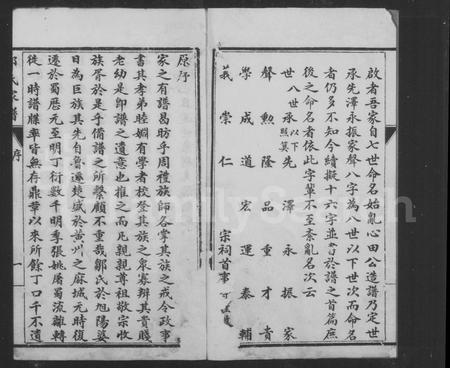 啟者吾家自七世命名始亂心田公造譜乃定世
承先澤永振家聲八字為八世以下世次而命名
者仍多不知今續擬十六字並書於譜之首篇庶
後之命名者依此字輩不至紊亂名次云
世八世以下照其承先澤永振家
聲勲隆品重才貴
學成道宏運泰輔
義崇仁
宗祠首事
原序
家之有譜昌昉乎周禮族師各掌其族之戒令政事
書其孝弟睦婣有學者校登其族之眾寡辨其貴賤
老幼是即譜之遺意也推之而凡親親尊祖敬宗收
族胥於是乎備譜之所繫顧不重哉鄒氏於旭陽婆
日為巨族其先自魯遷楚咸於黃州之麻城元時復
遷於蜀歷元至明丁衍數千明季張姚屠蜀流離轉
徙一時譜牒率皆無存鼎革以來所餘丁口千不遺
氏家譜
序
一